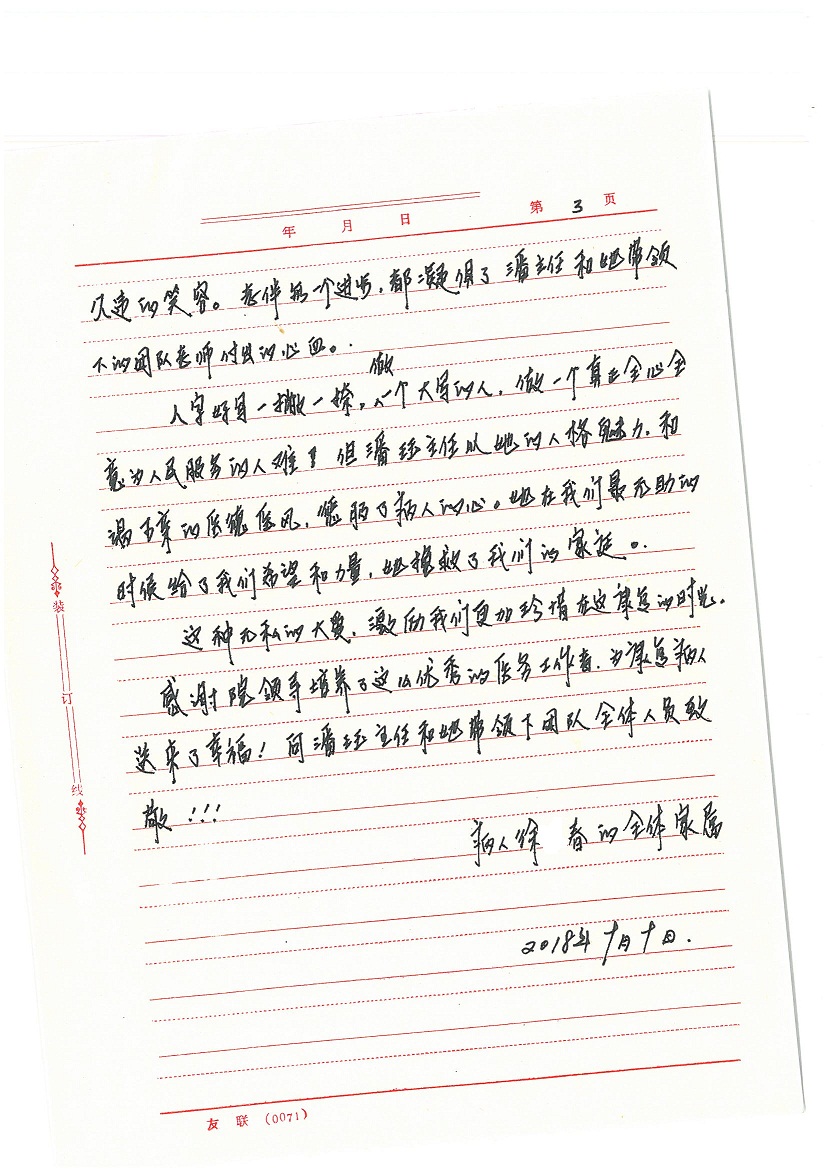 年 月 日 第 3 页
久违的笑容。老伴每一个进步，都凝俱了潘主任和她带领
下的团队老师付出的心血。
人字好写一撇一捺，做一个大写的人，做一个真正全心全
意为人民服务的人难！但潘珏主任以她的人格魅力，和
竭力的医德医风，征服了病人的心。她在我们最无助的
时候给了我们希望和力量，她拯救了我们的家庭。
这种无私的大爱，激励我们更加珍惜在这康复的时光。
感谢院领导培养了这么优秀的医务工作者，为康复病人
送来了幸福！向潘珏主任和她带领下团队全体人员致
敬！！！
病人徐 春的全体家属
2018年十月十日.
装 订 线
友 联 (0071)